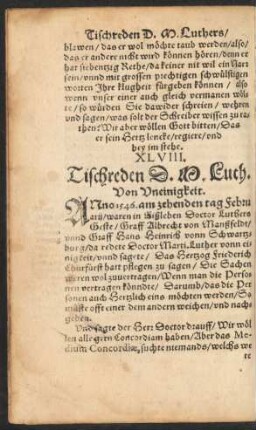 Tischreden D. M. Luthers/
blewen/das er wol möchte taub werden/also/
das er ander nicht wird können hören/denn er
hat siebentzig Rethe/da keiner nit wil ein Narr
sein/vnnd mit grossen prechtigen schwülstigen
worten Ihre klugheit fürgeben können / als
wenn vnser einer auch gleich vermanen wöl
te/so würden Sie dawider schreien / wehren
vnd sagen/was solt der Schreiber wissen zu ra
then? Wir aber wöllen Gott bitten/Das
er sein Hertz lencke/regiere/vnd
bey im stehe.
XLVIII.
Tischreden D. M. Luth.
Von Vneinigkeit.
ANno 1546. am zehenden tag Febru
arij/waren in Eißleben Doctor Luthers
Geste/Graff Albrecht von Mansfeldt/
vnnd Graff Hans Heinrich vonn Schwartz
burg/da redete Doctor Marti. Luther vonn ei
nigkeit/vnnd sagte / Das Hertzog Friederich
Churfürst hart pflegen zu sagen / Die Sachen
weren wol zuuertragen/Wenn man die Perso
nen vertragen köndte/ Darumb/das die Per
sonen auch Hertzlich eins möchten werden/So
müste offt einer dem andern weichen/vnd nach
geben.
Vnd sagte der Herr Doctor drauff/ Wir wöl
len alle gern Concordiam haben/Aber das Me-
dium Concordiæ, suchte niemands/welchs we
re